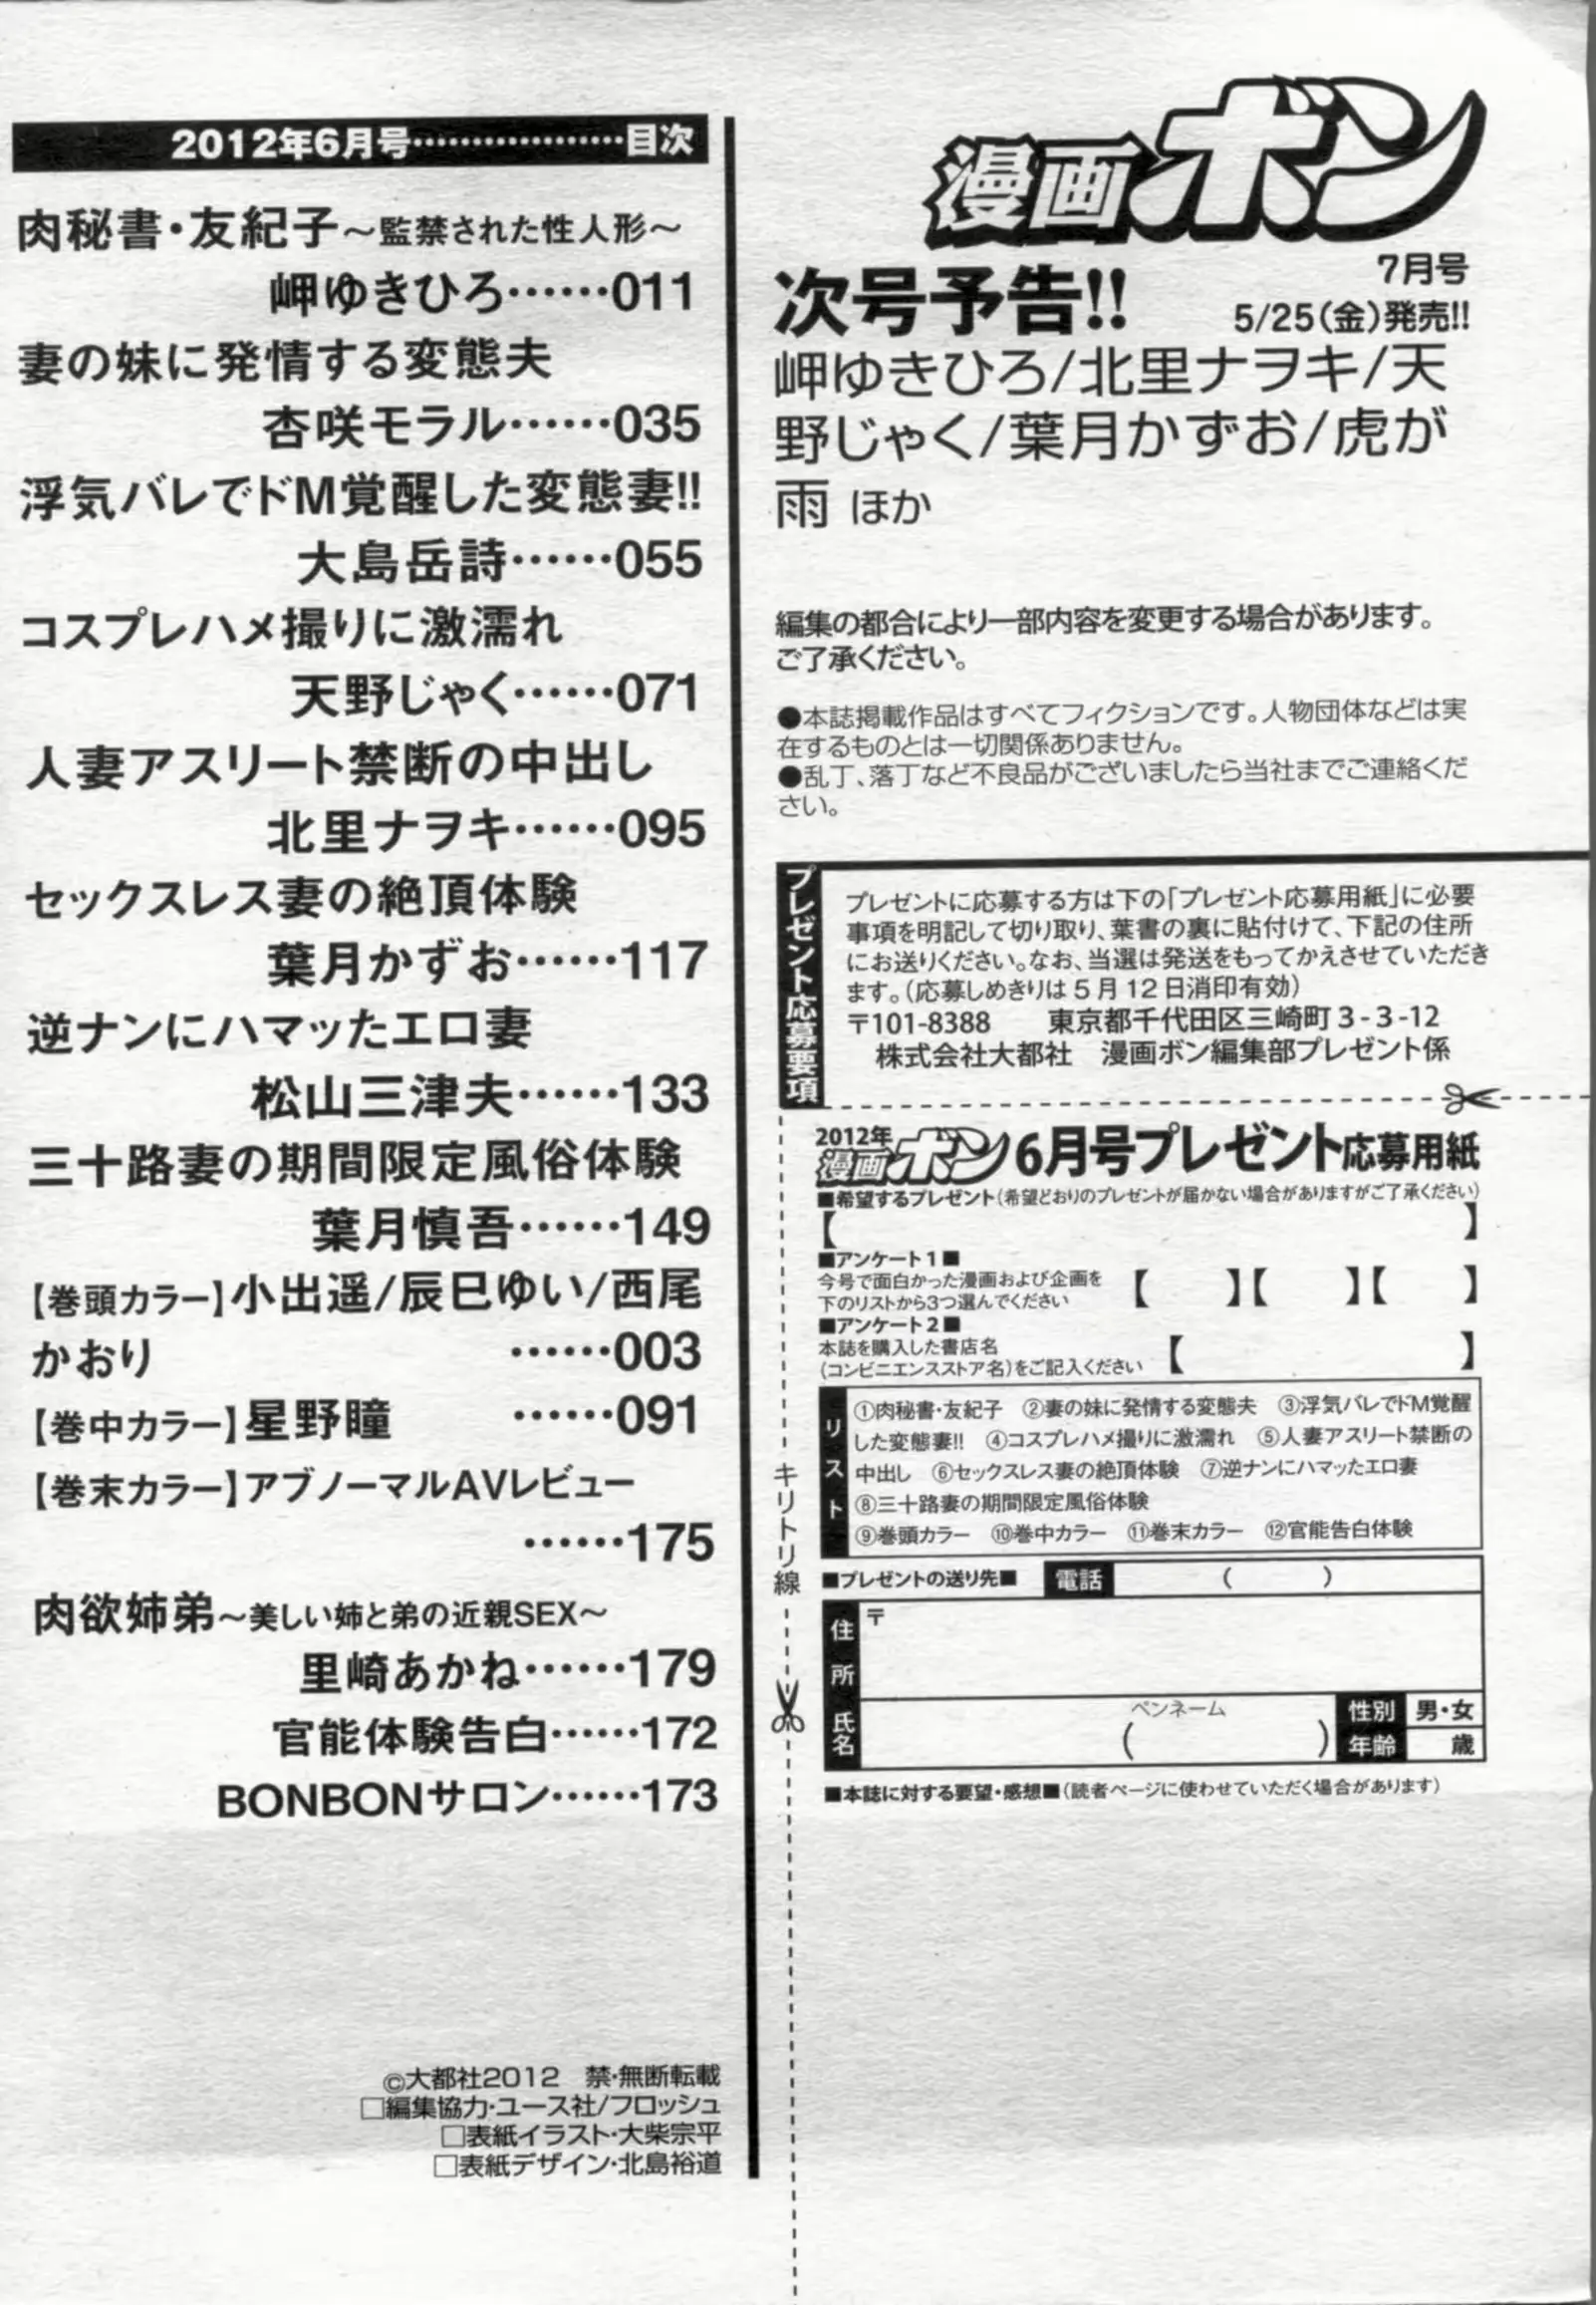 2012年6月号………………目次
肉秘書・友紀子～監禁された性人形～
岬ゆきひろ……011
妻の妹に発情する変態夫
杏咲モラル……035
浮気バレでドM覚醒した変態妻!!
大島岳詩……055
コスプレハメ撮りに激濡れ
天野じゃく……071
人妻アスリート禁断の中出し
北里ナヲキ……095
セックスレス妻の絶頂体験
葉月かずお……117
逆ナンにハマッたエロ妻
松山三津夫……133
三十路妻の期間限定風俗体験
葉月慎吾……149
【巻頭カラー】小出遥/辰巳ゆい/西尾
かおり ……003
【巻中カラー】星野瞳 ……091
【巻末カラー】アブノーマルAVレビュー
……175
肉欲姉弟～美しい姉と弟の近親SEX～
里崎あかね……179
官能体験告白……172
BONBONサロン……173
©大都社2012 禁・無断転載
□編集協力・ユース社/フロッシュ
□表紙イラスト・大柴宗平
□表紙デザイン・北島裕道
漫画ボン
次号予告!!
7月号
5/25(金)発売!!
岬ゆきひろ/北里ナヲキ/天
野じゃく/葉月かずお/虎が
雨 ほか
編集の都合により一部内容を変更する場合があります。
ご了承ください。
●本誌掲載作品はすべてフィクションです。人物団体などは実
在するものとは一切関係ありません。
●乱丁、落丁など不良品がございましたら当社までご連絡くだ
さい。
プレゼント応募要項
プレゼントに応募する方は下の「プレゼント応募用紙」に必要
事項を明記して切り取り、葉書の裏に貼付けて、下記の住所
にお送りください。なお、当選は発送をもってかえさせていただき
ます。(応募しめきりは5月12日消印有効)
〒101-8388 東京都千代田区三崎町3-3-12
株式会社大都社 漫画ボン編集部プレゼント係
2012年
漫画ボン6月号プレゼント応募用紙
■希望するプレゼント(希望どおりのプレゼントが届かない場合がありますがご了承ください)
【 】
■アンケート1■
今号で面白かった漫画および企画を
下のリストから3つ選んでください
【 】【 】【 】
■アンケート2■
本誌を購入した書店名
(コンビニエンスストア名)をご記入ください 【 】
リスト
①肉秘書・友紀子 ②妻の妹に発情する変態夫 ③浮気バレでドM覚醒
した変態妻!! ④コスプレハメ撮りに激濡れ ⑤人妻アスリート禁断の
中出し ⑥セックスレス妻の絶頂体験 ⑦逆ナンにハマッたエロ妻
⑧三十路妻の期間限定風俗体験
⑨巻頭カラー ⑩巻中カラー ⑪巻末カラー ⑫官能告白体験
キリトリ線
■プレゼントの送り先■ 電話 ( )
住所
〒
氏名
ペンネーム
( )
性別 男・女
年齢 歳
■本誌に対する要望・感想■(読者ページに使わせていただく場合があります)